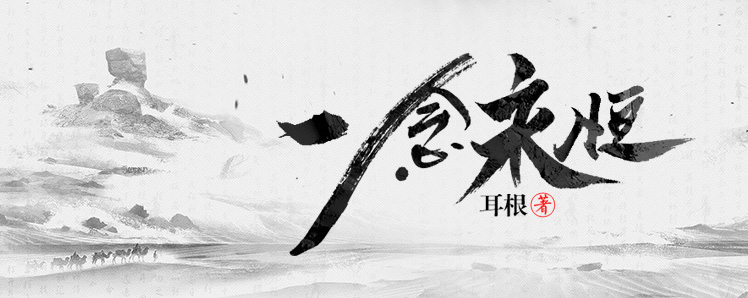 一念永恒
耳根 著